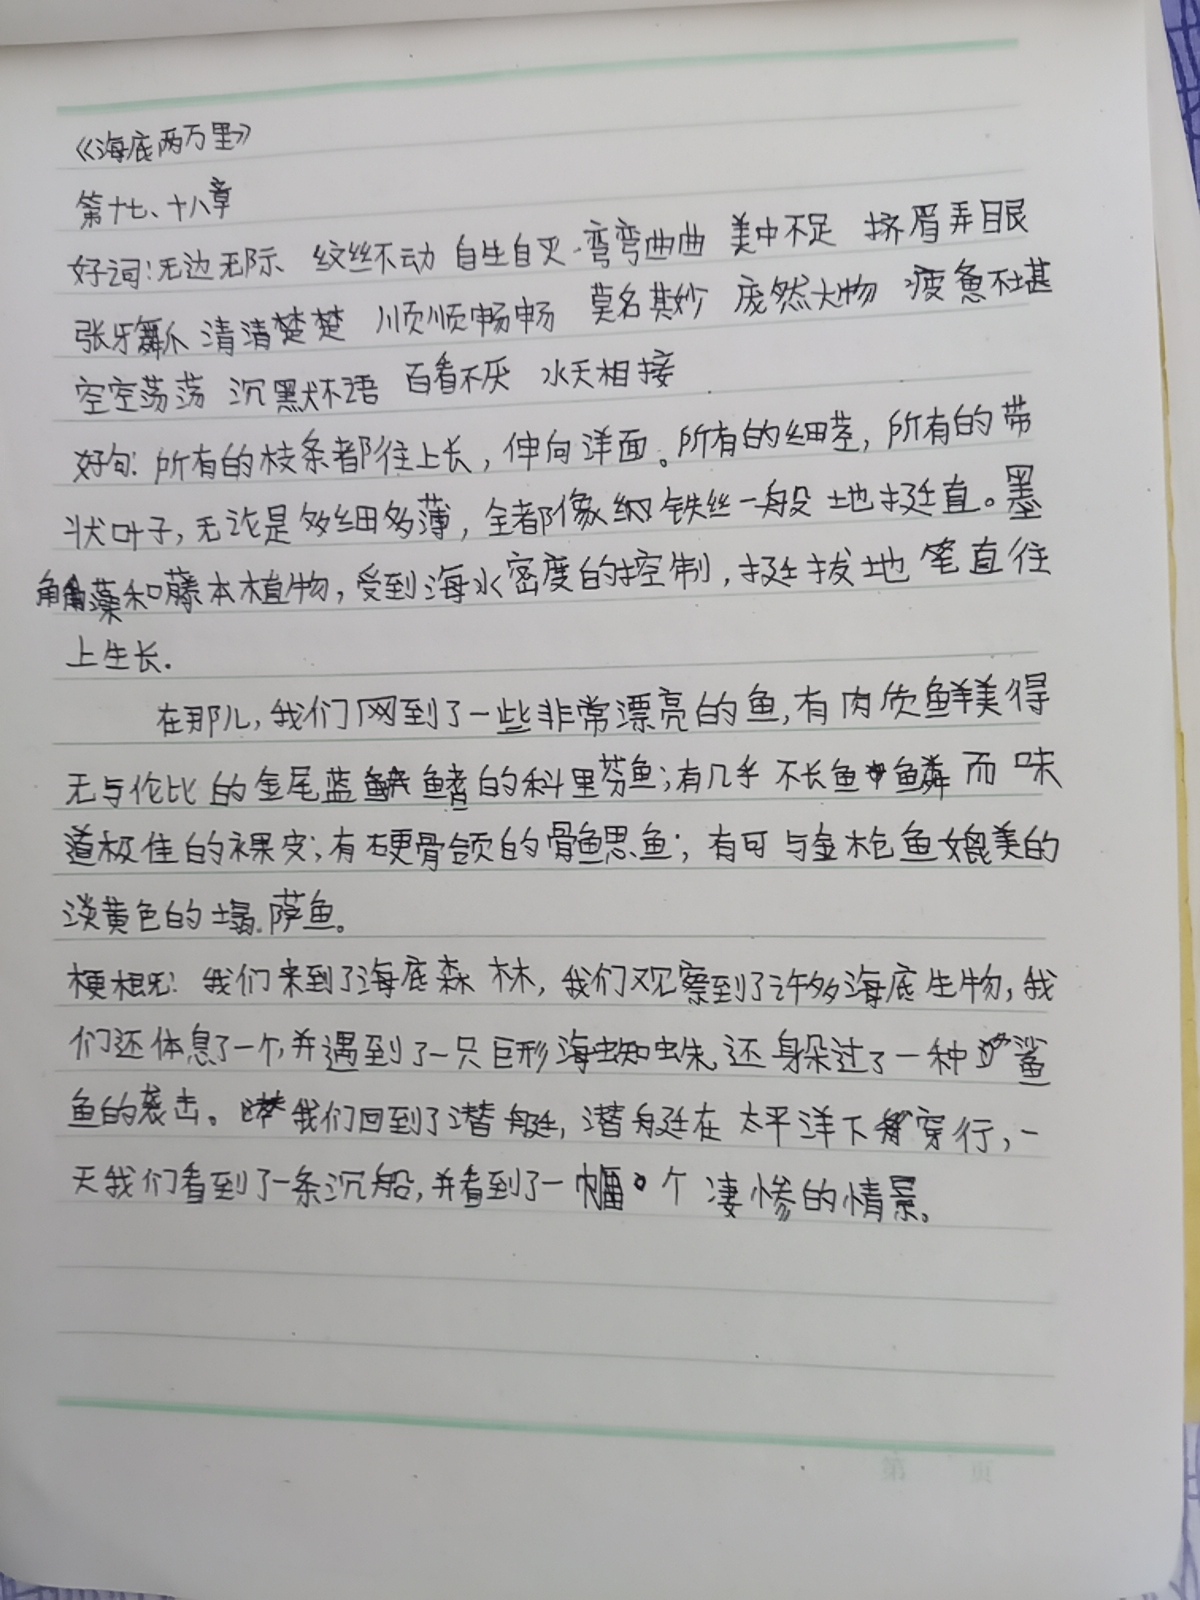 《海底两万里》
第十七、十八章
好词:无边无际 纹丝不动 自生自灭 弯弯曲曲 美中不足 挤眉弄眼
张牙舞爪 清清楚楚 顺顺畅畅 莫名其妙 庞然大物 疲惫不堪
空空荡荡 沉默不语 百看不厌 水天相接
好句:所有的枝条都往上长,伸向洋面。所有的细茎,所有的带
状叶子,无论是多细多薄,全都像细铁丝一般地挺直。墨
角藻和藤本植物,受到海水密度的控制,挺拔地笔直往
上生长.
在那儿,我们网到了一些非常漂亮的鱼,有肉质鲜美得
无与伦比的金尾蓝鳍的科里芬鱼;有几乎不长鱼鳞而味
道极佳的裸皮;有硬骨颌的骨鳃鱼;有可与金枪鱼媲美的
淡黄色的塌萨鱼。
梗概:我们来到了海底森林,我们观察到了许多海底生物,我
们还休息了一个,并遇到了一只巨形海蜘蛛,还躲过了一种鲨
鱼的袭击。我们回到了潜艇,潜艇在太平洋下穿行,一
天我们看到了一条沉船,并看到了一幅个凄惨的情景。
第 页